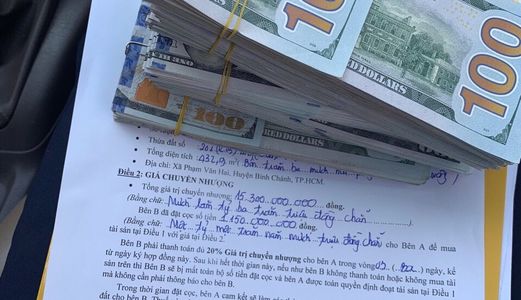 100
100
RED DOLLARS
100
RED DOLLARS
• Thửa đất số
• Tổng diện tích : 432,9 m²( Bốn trăm ba mươi hai
• Địa chỉ: Xã Phạm Văn Hai, Huyện Bình Chánh, TP.HCM.
Điều 2: GIÁ CHUYỂN NHƯỢNG
• Tổng giá trị chuyển nhượng: 15.300.000.000 đồng.
(Bằng chữ: Mười lăm tỷ ba trăm triệu đồng chẵn )
Bên B đã đặt cọc số tiền 1.150.000.000 đồng.
(Bằng chữ: Một tỷ một trăm năm mươi triệu đồng chẵn cho Bên A để mua
tài sản tại Điều 1 với giá tại Điều 2.
Bên B phải thanh toán đủ 20% Giá trị chuyển nhượng cho bên A trong vòng 03 (ba) ngày, kể
từ ngày ký hợp đồng này. Sau khi hết thời gian này, nếu như bên B không thanh toán hoặc không mua tài
sản trên thì Bên B sẽ bị mất toàn bộ số tiền đặt cọc và bên A được toàn quyền định đoạt tài sản tại Điều 1
mà không cần phải thông báo cho bên B.
Trong thời gian đặt cọc, bên A cam kết sẽ làm các